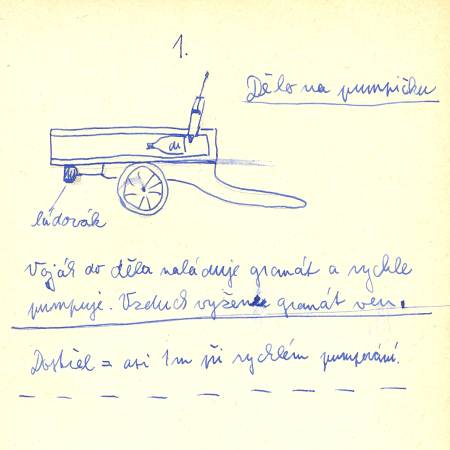 1.
Dělo na pumpičku
ládovák
Voják do děla naláduje granát a rychle
pumpuje. Vzduch vyžene granát ven.
Dostřel = asi 1m při rychlém pumpování.